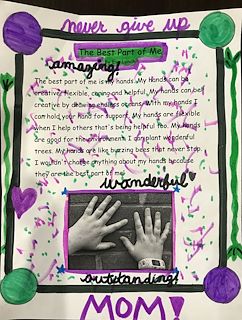 never give up
The Best Part of Me
amazing!
The best part of me is my hands. My hands can be
creative, flexible, caring and helpful. My hands can be
creative by drawing endless oceans. With my hands I
can hold your hand for support. My hands are flexible
when I help others that's being helpful too. My hands
are good for the environment I can plant wonderful
trees. My hands are like buzzing bees that never stop.
I wouldn't change anything about my hands because
they are the best part of me!
wonderful
outstanding!
MOM!